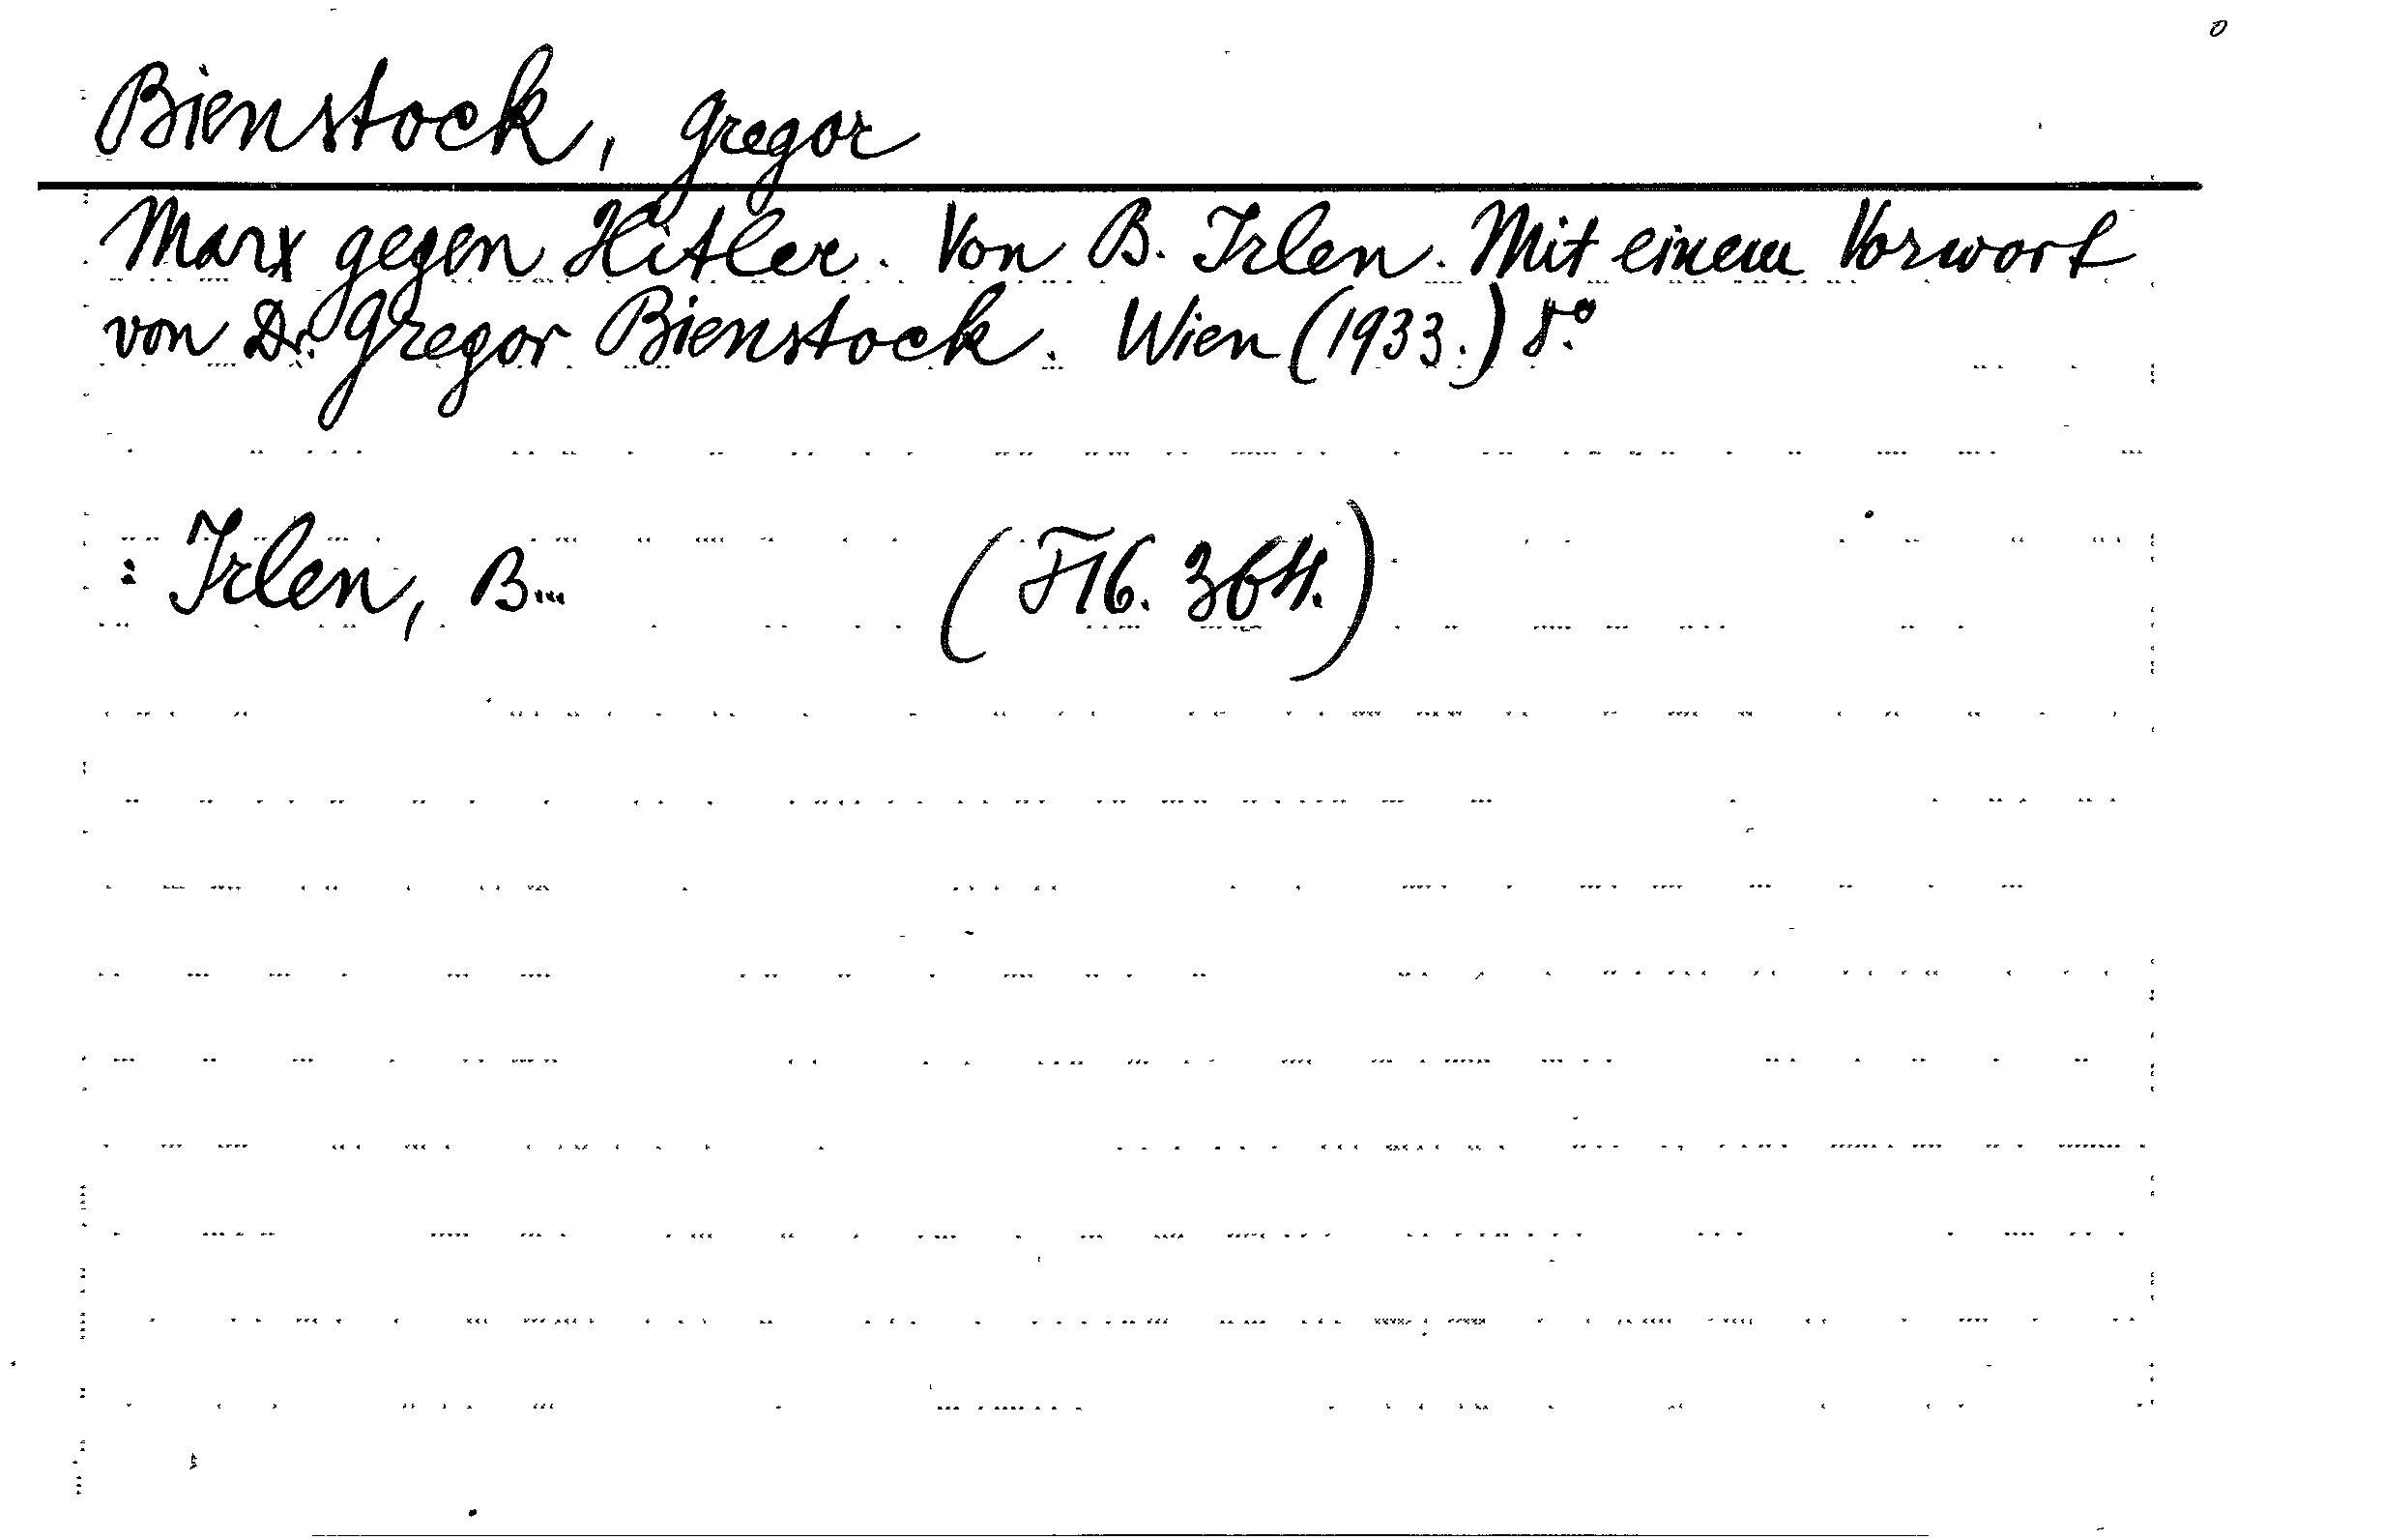 Bienstock, Gregor
Marx gegen Hitler. Von B. Irlen. Mit einem Vorwort
von Dr. Gregor Bienstock. Wien (1933.) 8.°
: Irlen, B... (